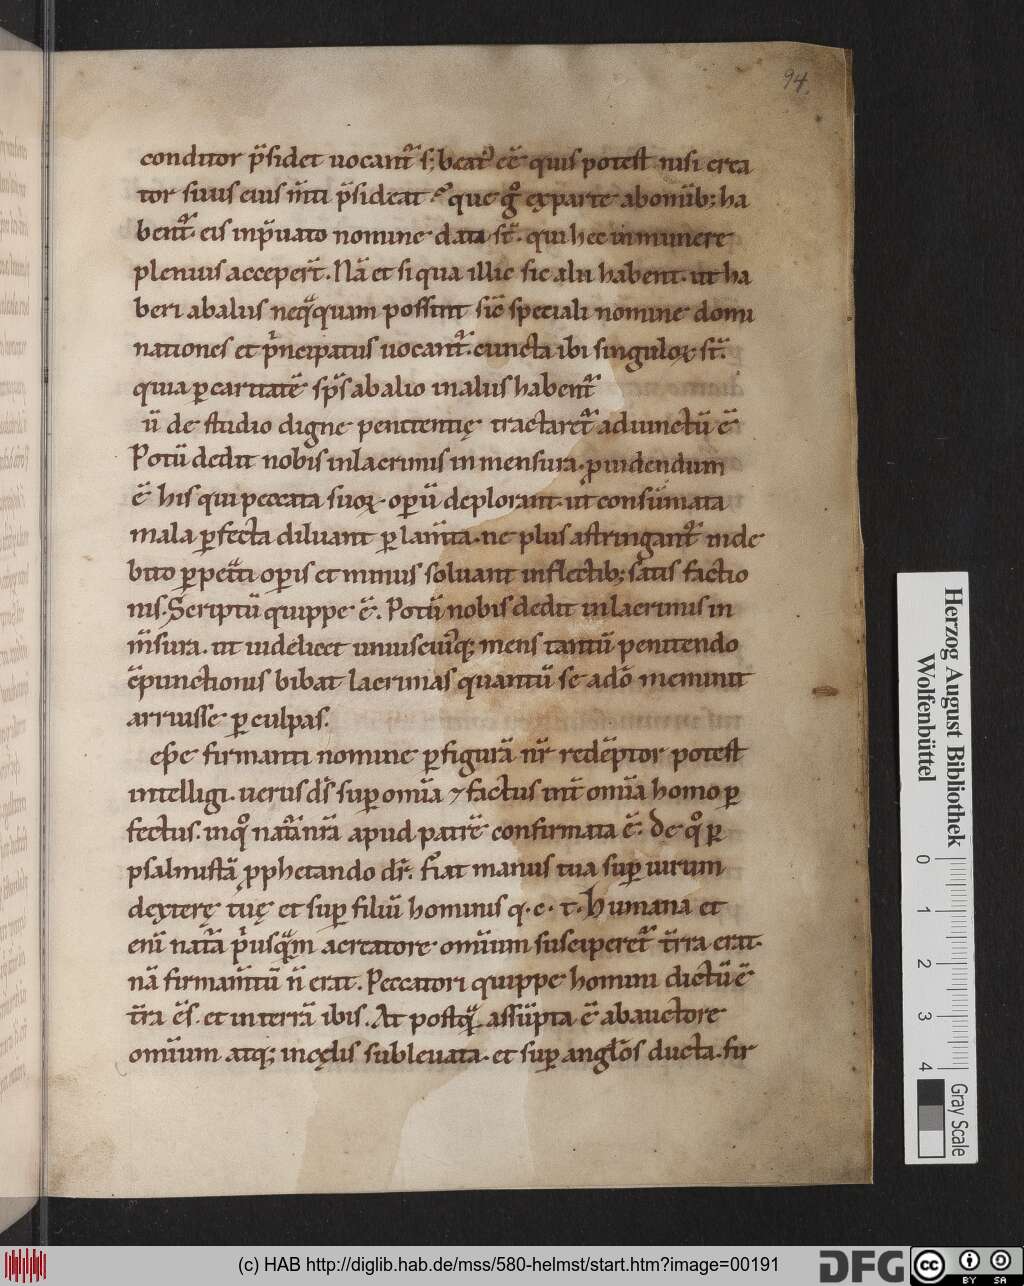 94.
conditor p̄sidet uocant᷑ s; beat᷒ eē quis potest nisi crea
tor suus eius m̄ti p̄sideat que g° ex parte ab omib; ha
bent᷑ eis in p̄uato nomine data st̄. qui hec in munere
plenius acceper̄t. Nā et si qua illic sic alii habent. ut ha
beri ab aliis neq̄quam possint sic̄ speciali nomine domi
nationes et p̄ncipatus uocant᷑. cuncta ibi singuloꝝ st̄.
quia ꝑ caritatē sp̄s ab alio in aliis habent᷑
ū de studio digne penitentię tractaret᷑ adiunctū ē
Potū dedit nobis in lacrimis in mensura. ꝓuidendum
ē his qui peccata suoꝝ opeꝝ deplorant. ut consūmata
mala ꝑfecta diluant ꝑ lam̄ta. ne plus astringant᷑ in de
bito ꝑpet̄ti opis et minus soluant in fletib; satis factio
nis. Scriptū quippe ē. Potū nobis dedit in lacrimis in
m̄sura. ut uidelicet uniuscui᷒q; mens tantū penitendo
c̄punctionis bibat lacrimas quantū se a dō meminit
arruisse ꝑ culpas.
ep̄e firmanti nomine ꝑfigurā nr̄ redēptor potest
intelligi. uerus d̄s suꝑ omīa ⁊ factus int̄ omīa homo ꝑ
fectus. in q° nat᷑a nr̄a apud patrē confirmata ē. De q° ꝑ
psalmistā ꝓphetando dr̄. Fiat manus tua suꝑ uirum
dęxterę tuę et suꝑ filiū hominis q. c. t. Humana et
enī nat᷑a p̄usq̄m a creatore omium susciperet᷑ t̄rra erat.
nā firmam̄tū n̄ erat. Peccatori quippe homini dictū ē
t̄ra ēs. et in terrā ibis. At postq̄ assūpta ē ab auctore
omium atq; in cęlis subleuata. et suꝑ angl̄os ducta. fir
Herzog August Bibliothek
Wolfenbüttel
0 1 2 3 4
Gray Scale
(c) HAB http://diglib.hab.de/mss/580-helmst/start.htm?image=00191
DFG
cc BY SA